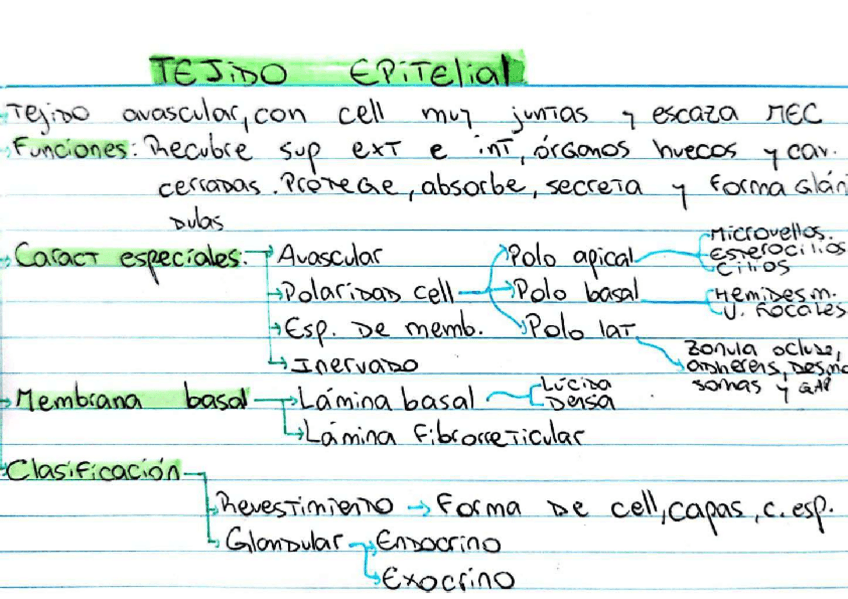 TEJIDO EPITElial
Tejido avascular, con cell muy juntas y escaza MEC
Funciones: Recubre sup ext e int, órganos huecos y cav.
cerradas. Protege, absorbe, secreta y forma glán
dulas
Caract especiales: Avascular
Polo apical
Microvellos.
Esterocilios
Cilios
Polaridad cell
Polo basal
Hemidesm.
U. Focales
Esp. de memb.
Polo lat
Zonula oclude,
adherens, Desmo
somas y GAP
Inervado
Membrana basal
Lámina basal
Lúcida
Densa
Lámina Fibrorreticular
Clasificación
Revestimiento
Forma de cell, capas, c. esp.
Glandular
Endocrino
Exocrino